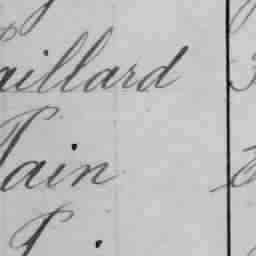 aillard
Pain
P.